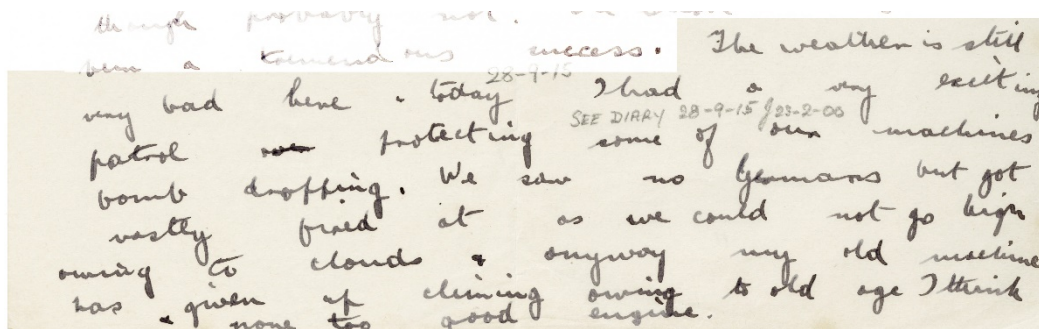 though probably not.
been a tremendous success. The weather is still
28-9-15
very bad here & today I had a very exciting
SEE DIARY 28-9-15 J 23-2-00
patrol protecting some of our machines
bomb dropping. We saw no Germans but got
vastly fired at as we could not go high
owing to clouds & anyway my old machine
has given up climing owing to old age I think
& none too good engine.